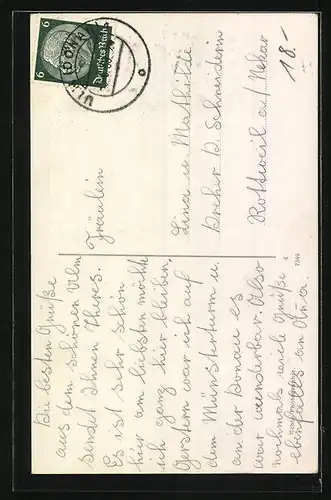 Die besten Grüße
aus dem schönen Ulm
sendet Ihnen Theres.
Es ist sehr schön
hier am liebsten möchte
ich ganz hier bleiben.
Gerstern war ich auf
dem Münsterturm u.
an der Donau es
war wunderbar. Also
nochmals viele Grüße
ebenfalls an
6
6
Deutsches Reich
18.-
Fräulein
Lina u. Mathilde
Dreher b. Schneiderin
Rottweil a/Nekar
4
7749